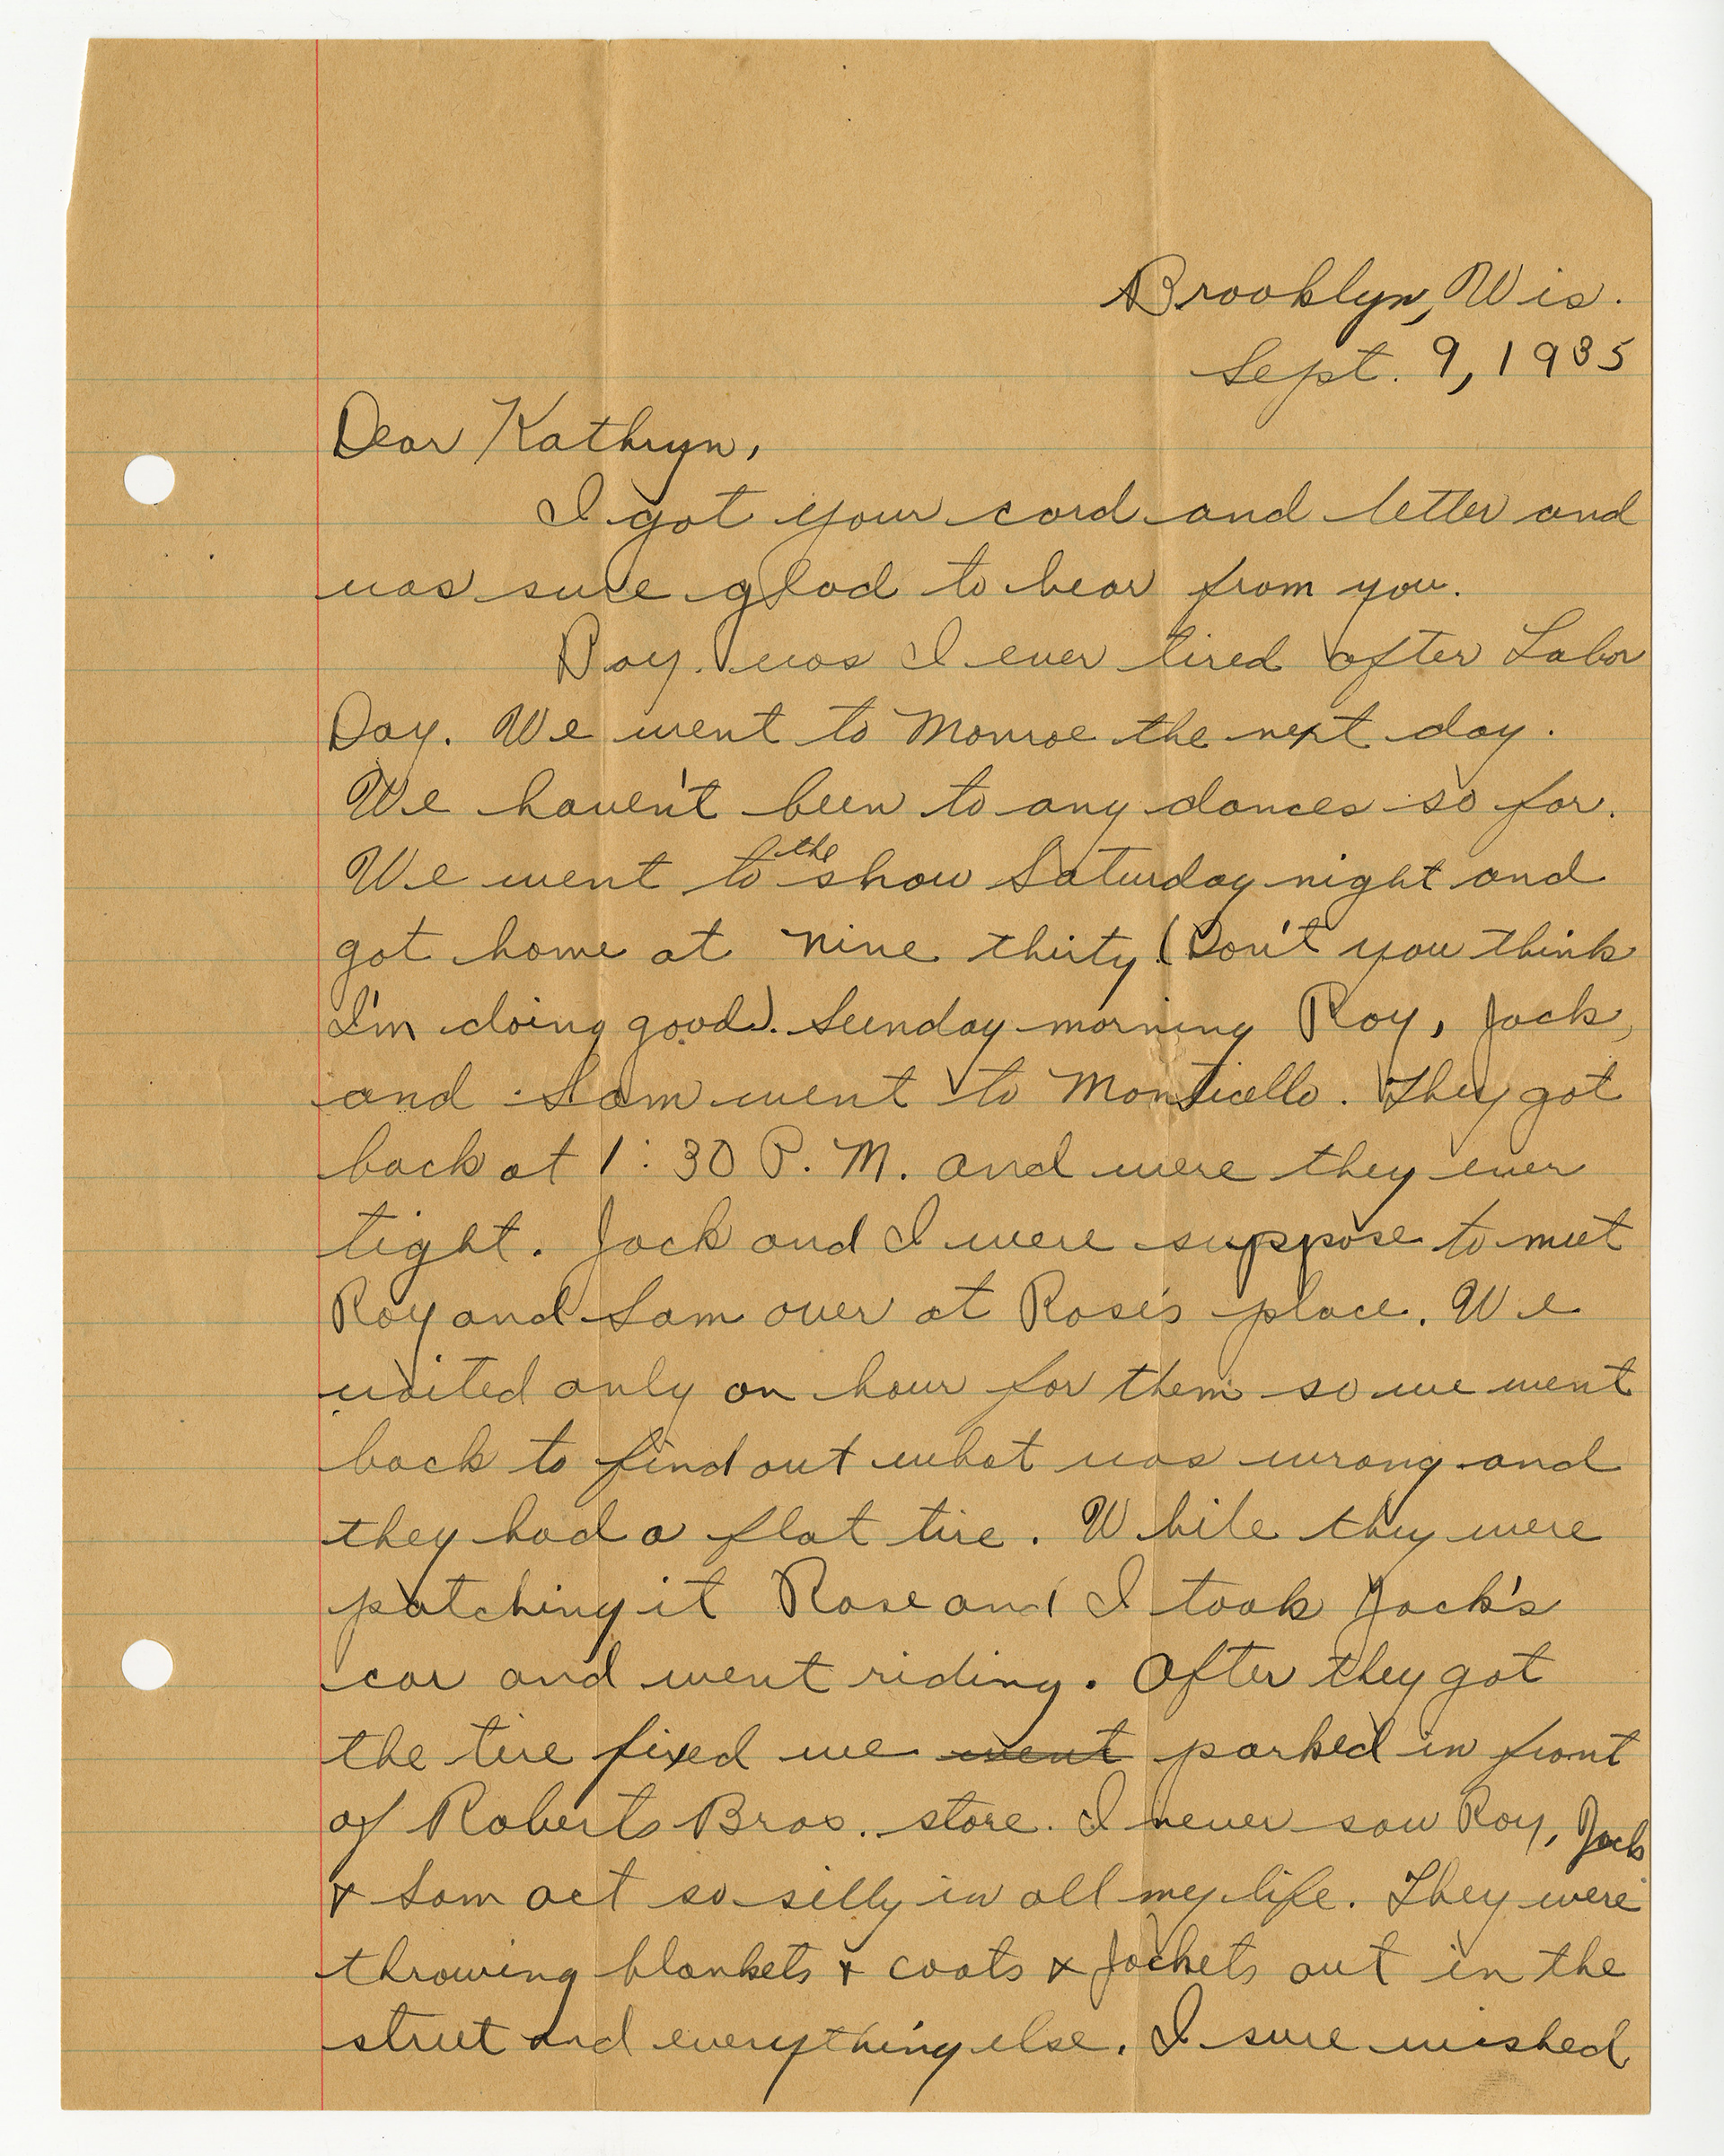 Brooklyn, Wis.
Sept. 9, 1935
Dear Kathryn,
I got your card and letter and
was sure glad to hear from you.
Boy. was I ever tired after Labor
Day. We went to Monroe the next day.
We haven't been to any dances so far.
We went to the show Saturday night and
got home at nine thirty (Don't you think
I'm doing good). Sunday morning Roy, Jack,
and Sam went to Monticello. They got
back at 1:30 P.M. and were they ever
tight. Jack and I were suppose to meet
Roy and Sam over at Rose's place. We
waited only an hour for them so we went
back to find out what was wrong and
they had a flat tire. While they were
patching it Rose and I took Jack's
car and went riding. After they got
the tire fixed we went parked in front
of Roberts Bros. store. I never saw Roy, Jack
& Sam act so silly in all my life. They were
throwing blankets & coats & jackets out in the
street and everything else. I sure wished